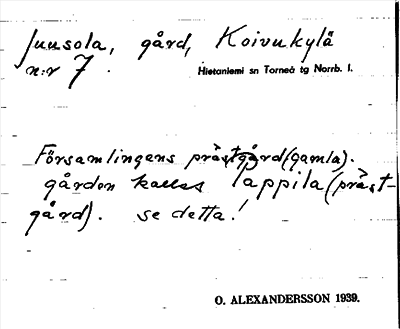 Juusola, gård, Koivukylä
n:r 7.
Hietaniemi sn Torneå tg Norrb. l.
Församlingens prästgård (gamla).
gården kallas Lappila (präst-
gård). se detta!
O. ALEXANDERSSON 1939.